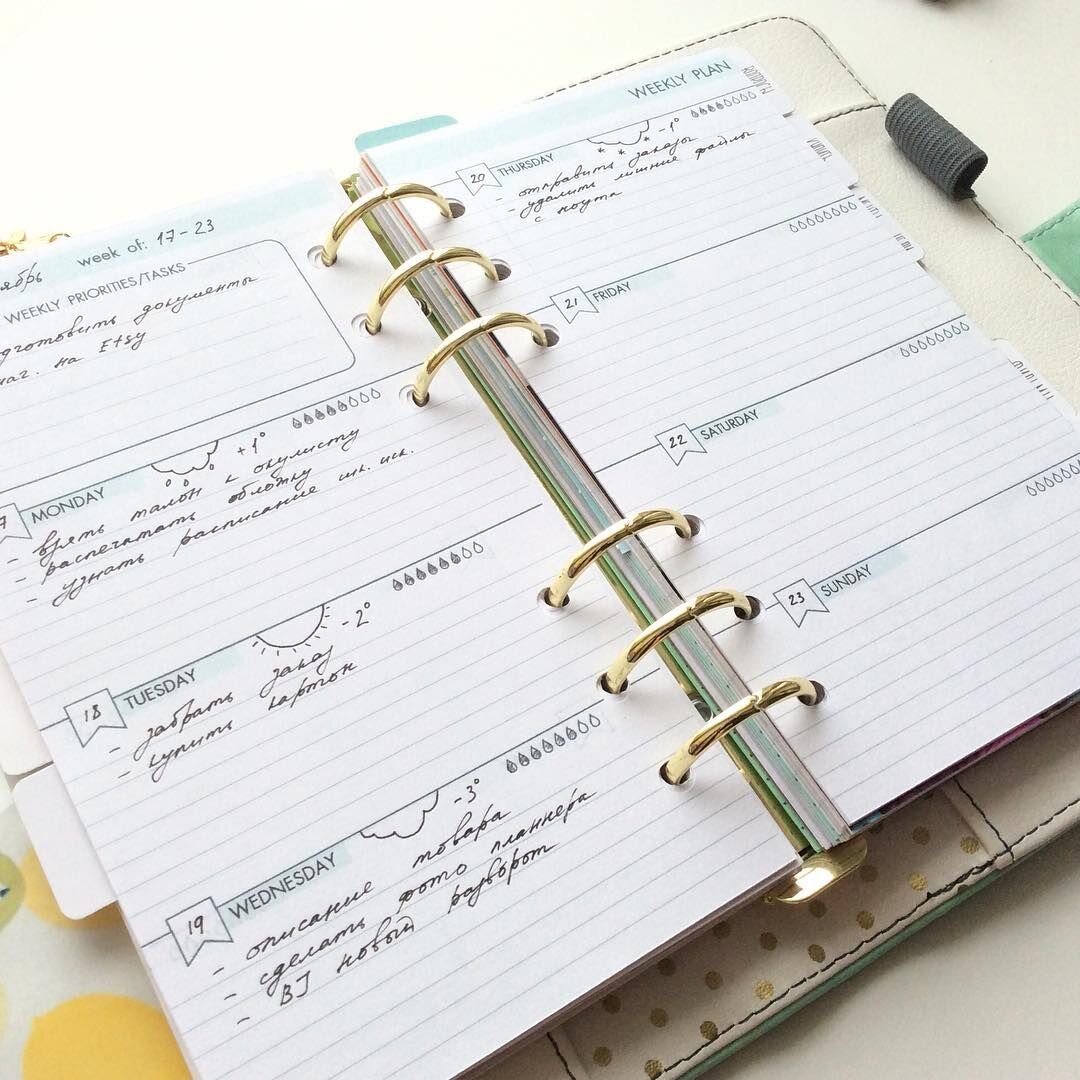 ябрь week of: 17-23
WEEKLY PRIORITIES/TASKS
дготовить документы
маг. на Etsy
7 MONDAY +1°
- взять талон к окулисту
- распечатать обложку
- узнать расписание шк. иск.
18 TUESDAY -2°
- забрать заказ
- купить картон
19 WEDNESDAY -3°
- описание товара
- сделать фото планнера
- BJ новый разворот
WEEKLY PLAN
20 THURSDAY -1°
- отправить заказы
- удалить лишние файлы
с ноута
21 FRIDAY
22 SATURDAY
23 SUNDAY